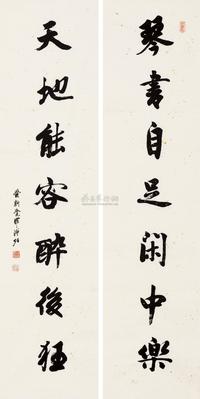 琴書自足閑中樂
天地能容醉後狂